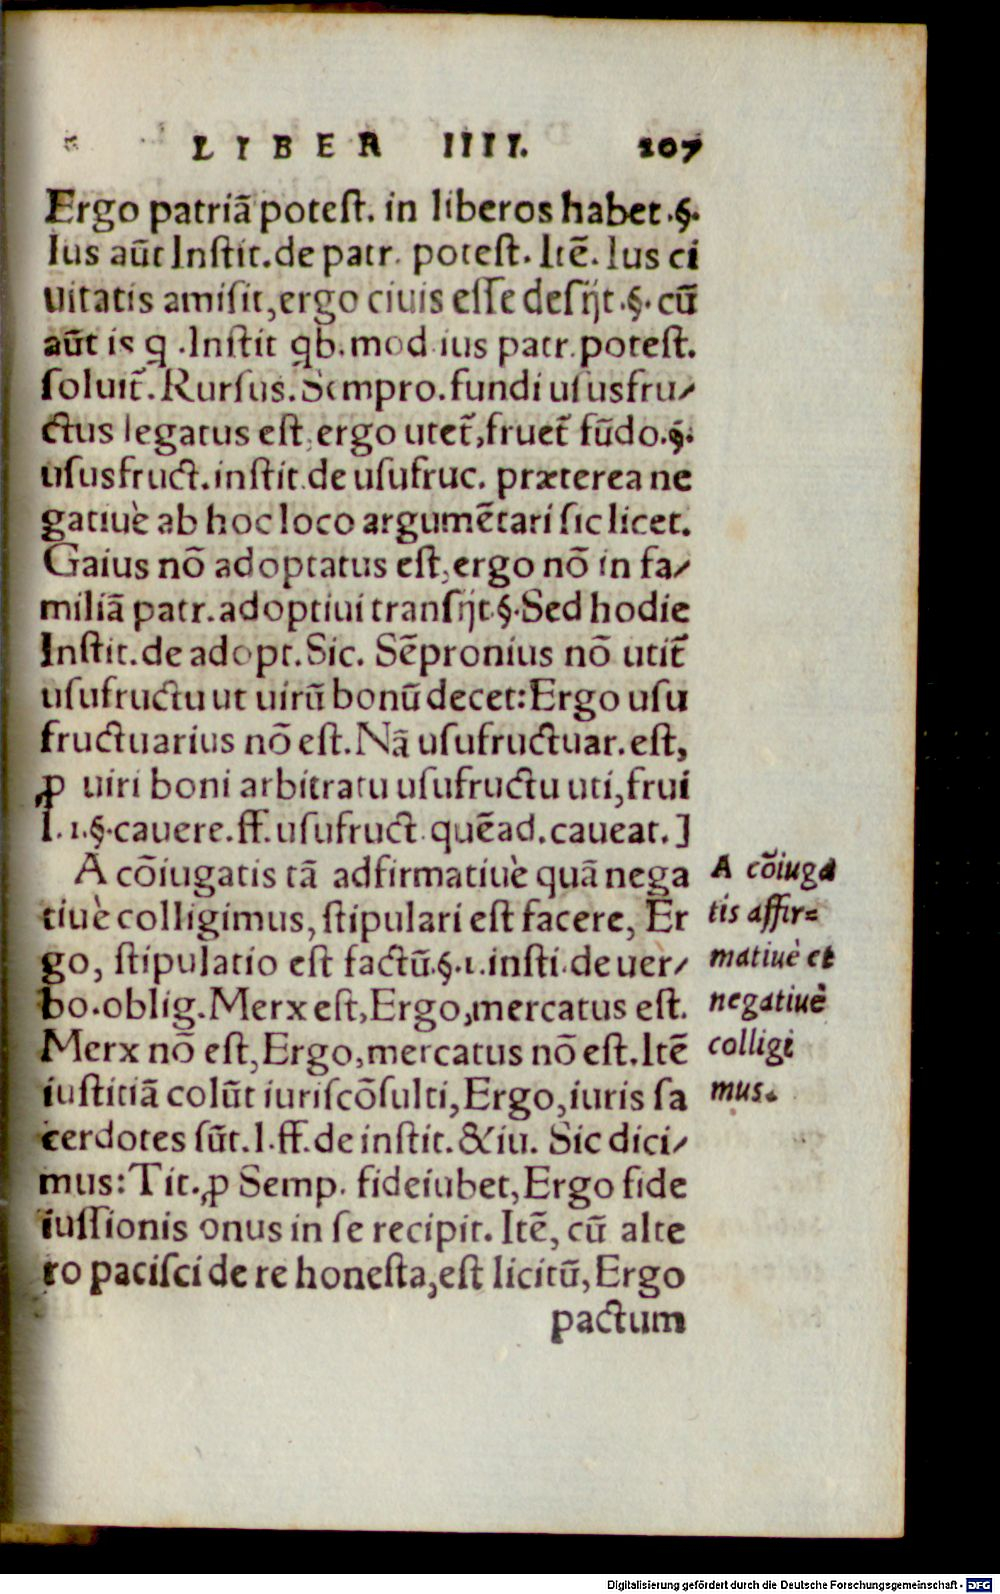 LIBER IIII. 207
Ergo patriā potest. in liberos habet .§.
Ius aūt Instit. de patr. potest. Itē. Ius ci
uitatis amisit, ergo ciuis esse desijt .§. cū
aūt is q .Instit qb. mod ius patr. potest.
soluit̄. Rursus. Sempro. fundi ususfru/
ctus legatus est, ergo utet̄, fruet̄ fūdo.§.
ususfruct. instit. de usufruc. præterea ne
gatiuè ab hoc loco argumētari sic licet.
Gaius nō adoptatus est, ergo nō in fa/
miliā patr. adoptiui transijt.§. Sed hodie
Instit. de adopt. Sic. Sēpronius nō utit̄
usufructu ut uirū bonū decet: Ergo usu
fructuarius nō est. Nā usufructuar. est,
ꝓ uiri boni arbitratu usufructu uti, frui
l. 1.§. cauere. ff. usufruct. quēad. caueat. ]
A cōiugatis tā adfirmatiuè quā nega
tiuè colligimus, stipulari est facere, Er
go, stipulatio est factū.§.1. insti. de uer/
bo. oblig. Merx est, Ergo, mercatus est.
Merx nō est, Ergo, mercatus nō est. Itē
iustitiā colūt iuriscōsulti, Ergo, iuris sa
cerdotes sūt. l. ff. de instit. & iu. Sic dici/
mus: Tit. ꝓ Semp. fideiubet, Ergo fide
iussionis onus in se recipit. Itē, cū alte
ro pacisci de re honesta, est licitū, Ergo
pactum
A cōiuga
tis affir=
matiuè et
negatiuè
colligi
mus.
Digitalisierung gefördert durch die Deutsche Forschungsgemeinschaft - DFG